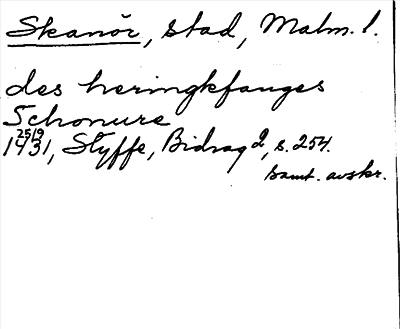 Skanör, stad, Malm. l.
des heringkfanges
Schonure
25/9
1431, Styffe, Bidrag 2, s. 254.
samt. avskr.